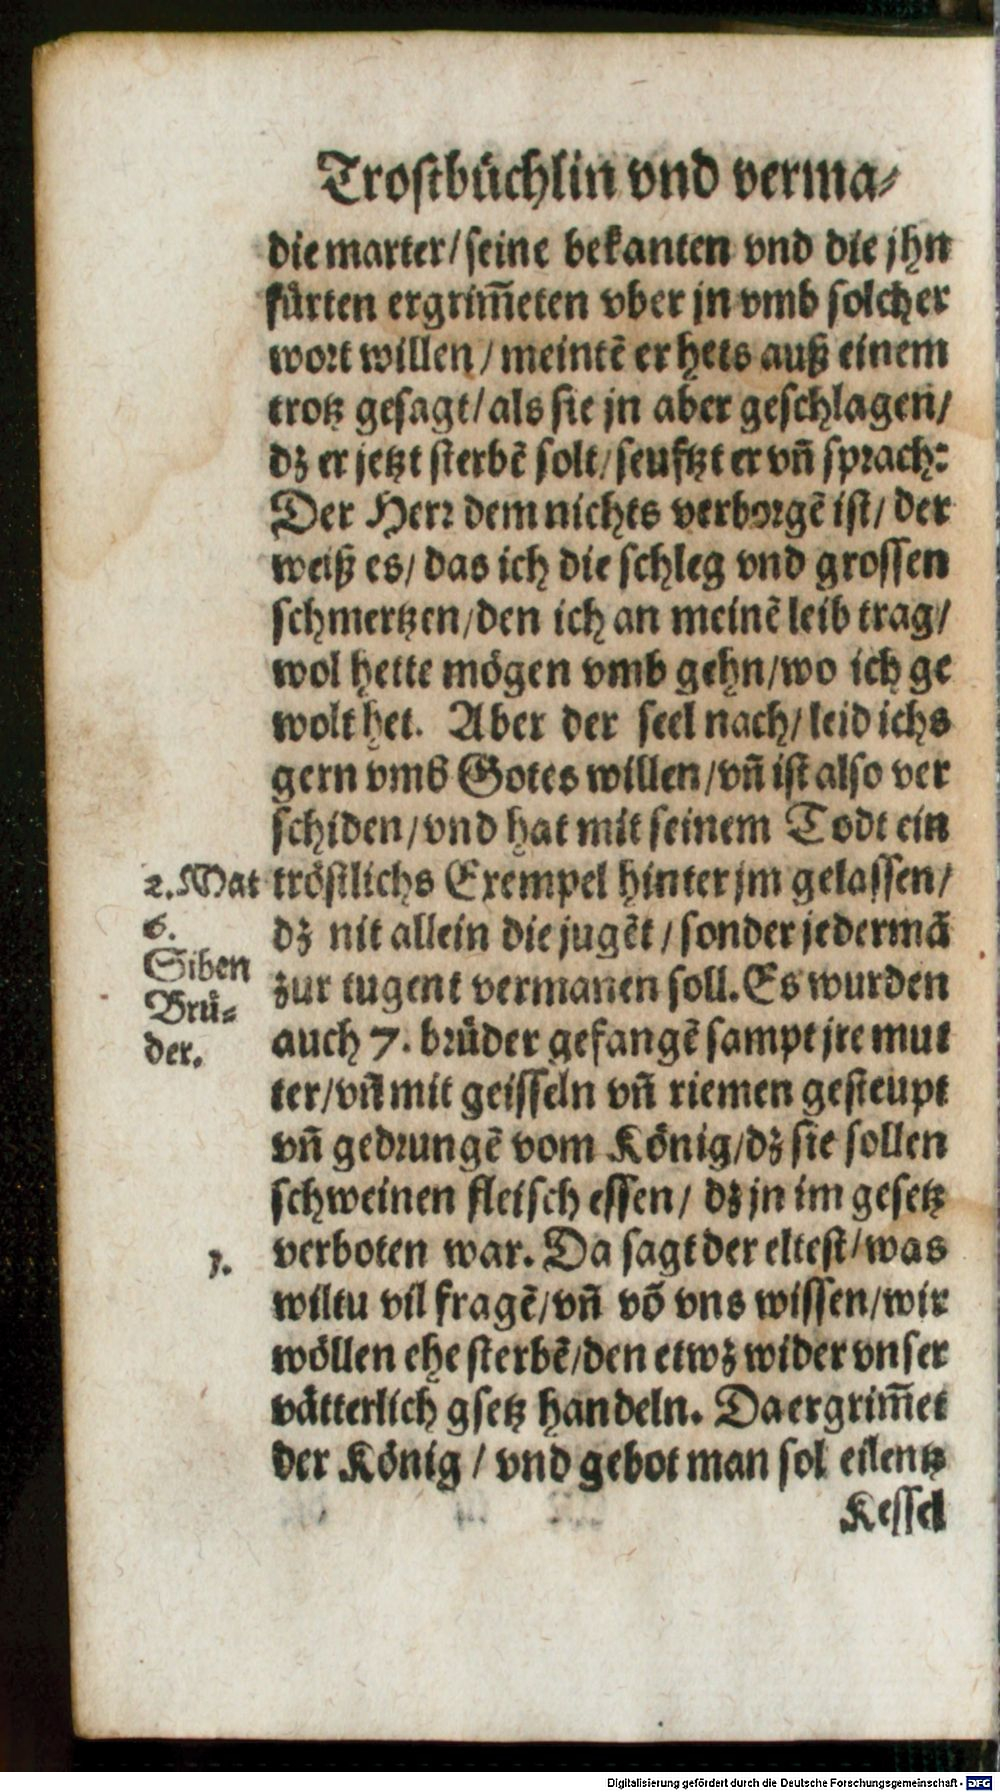 Trostbüchlin vnd verma⸗
die marter/ seine bekanten vnd die jhn
fürten ergrim̃eten vber jn vmb solcher
wort willen/ meintẽ er hets auß einem
trotz gesagt/ als sie jn aber geschlagen/
dz er jetzt sterbẽ solt/ seuftzt er vñ sprach:
Der Herr dem nichts verborgẽ ist/ der
weiß es/ das ich die schleg vnd grossen
schmertzen/ den ich an meinẽ leib trag/
wol hette mögen vmb gehn/ wo ich ge
wolt het. Aber der seel nach/ leid ichs
gern vmb Gotes willen/ vñ ist also ver
schiden/ vnd hat mit seinem Todt ein
2. Mat
6.
Siben
Brü⸗
der.
tröstlichs Exempel hinter jm gelassen/
dz nit allein die jugẽt/ sonder jedermã
zur tugent vermanen soll. Es wurden
auch 7. brüder gefangẽ sampt jre mut
ter/ vñ mit geisseln vñ riemen gesteupt
vñ gedrungẽ vom König/ dz sie sollen
schweinen fleisch essen/ dz jn im gesetz
1.
verboten war. Da sagt der eltest/ was
wiltu vil fragẽ/ vñ võ vns wissen/ wir
wöllen ehe sterbẽ/ den etwz wider vnser
vätterlich gsetz handeln. Da ergrim̃et
der König/ vnd gebot man sol eilentz
Kessel
Digitalisierung gefördert durch die Deutsche Forschungsgemeinschaft - DFG